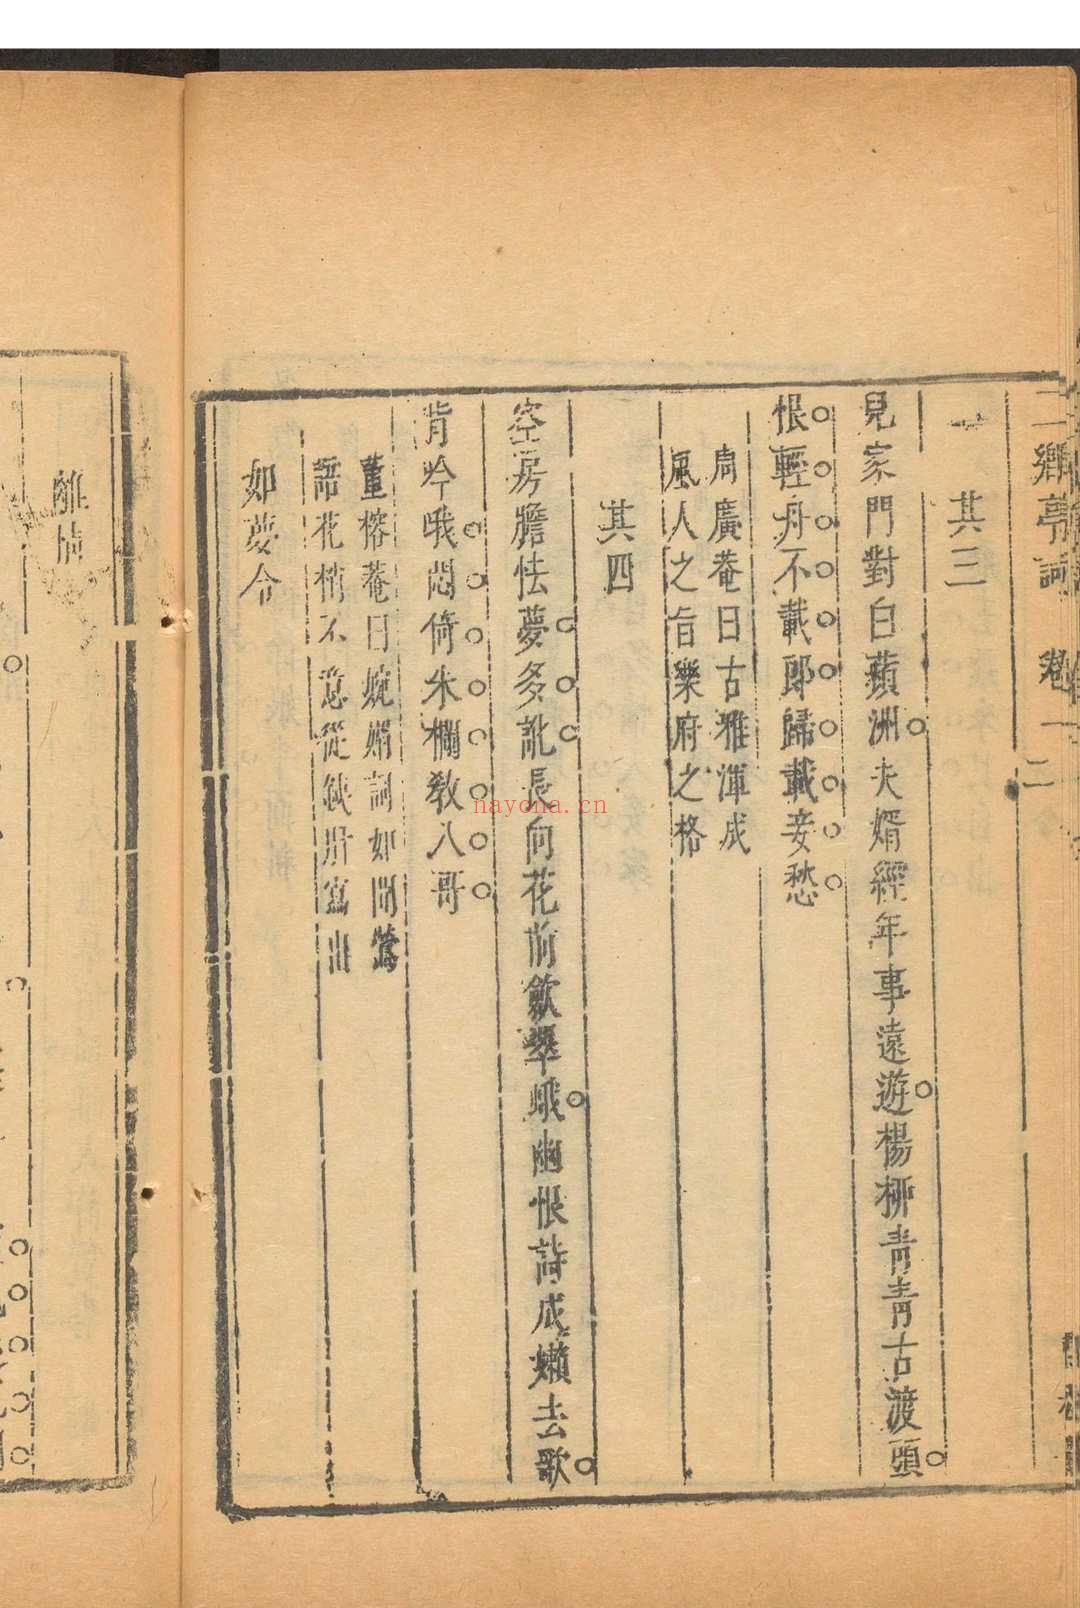 二鄉亭詞 卷一 二
其三
兒家門對白蘋洲夫婿經年事遠遊楊柳青青古渡頭
恨輕舟不載郎歸載妾愁
周廣菴曰古雅渾成
風人之旨樂府之格
其四
空房膽怯夢多訛長向花前斂翠蛾幽恨詩成懶去歌
背吟哦悶倚朱欄教八哥
董榕菴曰婉媚詞如聞鶯
語花梢不意從鐵肝寫出
如夢令
離情
nayona.cn